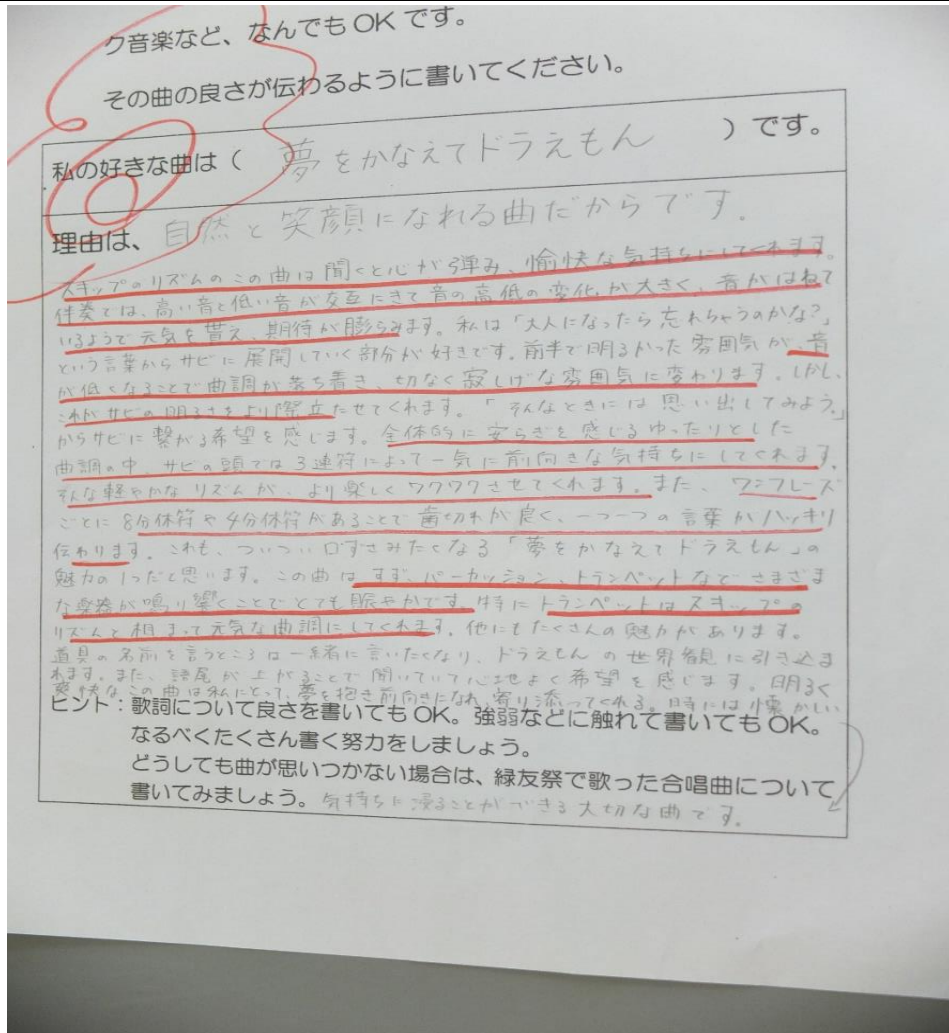 ク音楽など、なんでもOKです。
その曲の良さが伝わるように書いてください。
私の好きな曲は( 夢をかなえてドラえもん )です。
理由は、自然と笑顔になれる曲だからです。
スキップのリズムのこの曲は聞くと心が弾み、愉快な気持ちにしてくれます。
伴奏では、高い音と低い音が交互にきて音の高低の変化が大きく、音がはねて
いるようで元気を貰え、期待が膨らみます。私は「大人になったら忘れちゃうのかな?」
という言葉からサビに展開していく部分が好きです。前半で明るかった雰囲気が、音
が低くなることで曲調が落ち着き、切なく寂しげな雰囲気に変わります。しかし、
これがサビの明るさをより際立たせてくれます。「そんなときには思い出してみよう。」
からサビに繋がる希望を感じます。全体的に安らぎを感じるゆったりとした
曲調の中、サビの頭では3連符によって一気に前向きな気持ちにしてくれます。
そんな軽やかなリズムが、より楽しくワクワクさせてくれます。また、ワンフレーズ
ごとに8分休符や4分休符があることで歯切れが良く、一つ一つの言葉がハッキリ
伝わります。これも、ついつい口ずさみたくなる「夢をかなえてドラえもん」の
魅力の1つだと思います。この曲はすず、パーカッション、トランペットなどさまざま
な楽器が鳴り響くことでとても賑やかです。特にトランペットはスキップの
リズムと相まって元気な曲調にしてくれます。他にもたくさんの魅力があります。
道具の名前を言うところは一緒に言いたくなり、ドラえもんの世界観に引き込ま
れます。また、語尾が上がることで聞いていて心地よく希望を感じます。明るく
愉快なこの曲は私にとって、夢を抱き前向きになれ、寄り添ってくれる。時には懐かしい
ヒント:歌詞について良さを書いてもOK。強弱などに触れて書いてもOK。
なるべくたくさん書く努力をしましょう。
どうしても曲が思いつかない場合は、緑友祭で歌った合唱曲について
書いてみましょう。気持ちに浸ることができる大切な曲です。